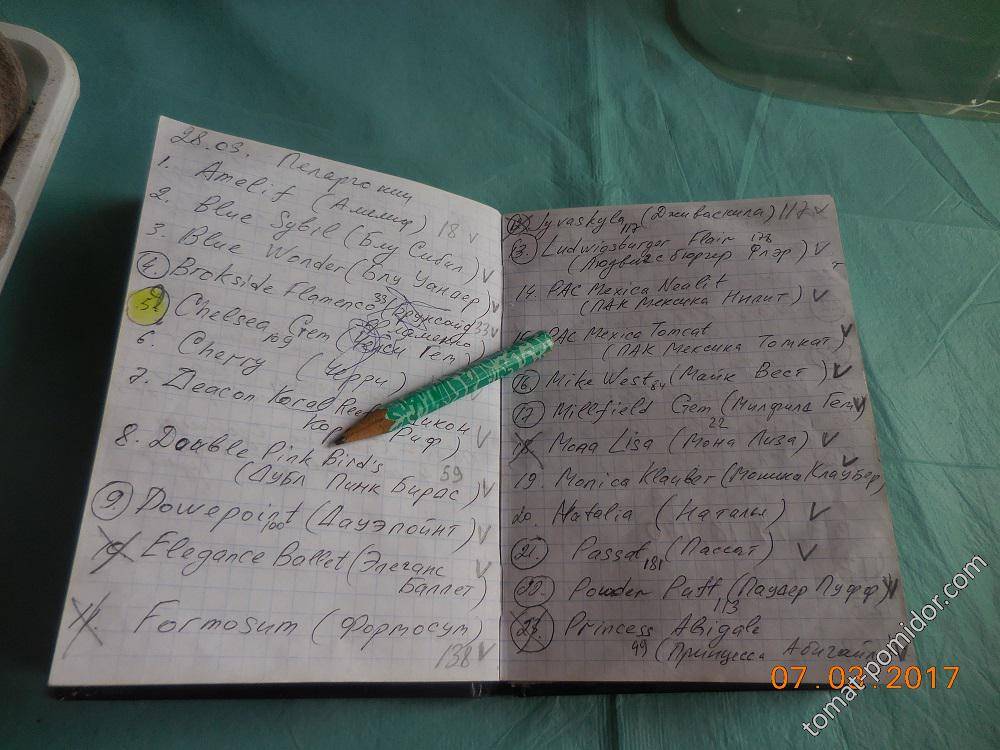 28.03. Пеларгонии
1. Amelif (Амелиф) 18 V
2. Blue Sybil (Блу Сибил) V
3. Blue Wonder (Блу Уандер) V
4. Brokside Flamenco 33 (Бруксайд 33 V
Фламенко
Chelsea Gem (Челси Гем)
109
6. Cherry (Черри)
7. Deacon Koral Reef Дикон V
Риф)
8. Double Pink Birdis 59
(Дубл Пинк Бирдс) V
9. Dowepoint (Дауэпойнт) V
100
10. Elegance Ballet (Элеганс V
Баллет)
11. Formosum (Формосум)
138 V
Jyvaskyla (Дживаскила) 117 V
117
13. Ludwigsburger Flair 178
(Людвигсбюргер Флэр) V
14. PAC Mexica Nealit
(ПАК Мексика Нилит) V
15. PAC Mexica Tomcat
(ПАК Мексика Томкат) V
16. Mike West 84 (Майк Вест) V
17. Millfield Gem (Милфилд Гем) V
22
18. Мона Lisa (Мона Лиза) V
19. Monica Klauber (Моника Клаубер) V
20. Natalia (Наталья) V
21. Passat 181 (Пассат) V
22. Powder Puff (Паудер Пуфф) V
113
23. Princess Abigale
49 (Принцесса Абигайл) V
07.03.2017
tomat-pomidor.com